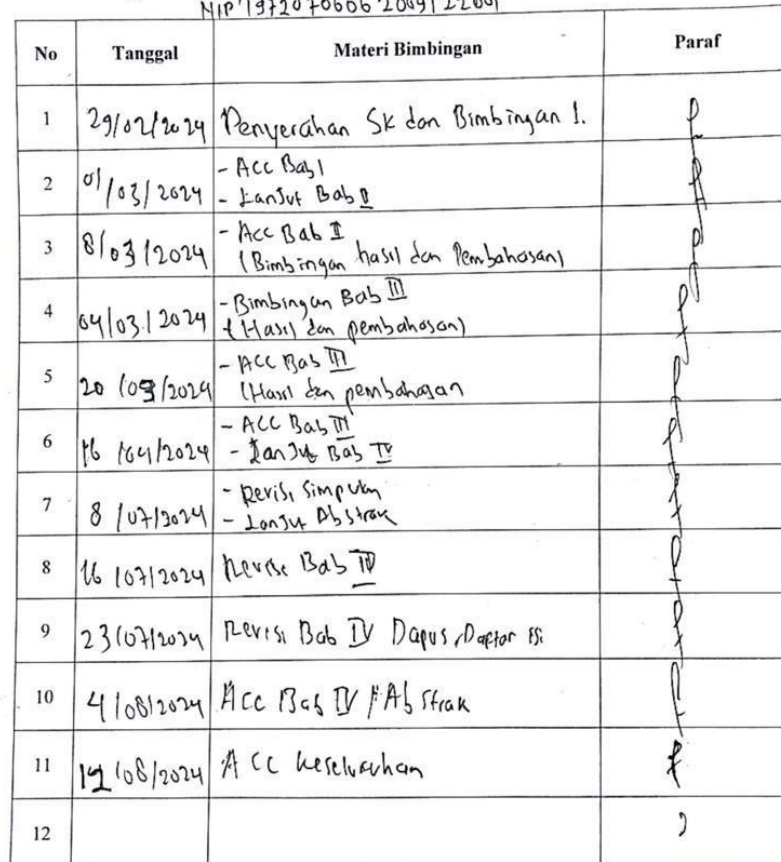 NIP 197207060620091 22001
No Tanggal Materi Bimbingan Paraf
1 29/02/2024 Penyerahan SK dan Bimbingan 1.
2 01/03/2024 - Acc Bab 1
- Lanjut Bab II
3 8/03/2024 - Acc Bab II
(Bimbingan hasil dan Pembahasan)
4 04/03/2024 - Bimbingan Bab III
(Hasil dan pembahasan)
5 20/03/2024 - ACC Bab III
(Hasil dan pembahasan
6 16/04/2024 - ACC Bab III
- Lanjut Bab IV
7 8/07/2024 - Revisi Simpulan
- Lanjut Abstrak
8 16/07/2024 Revisi Bab IV
9 23/07/2024 Revisi Bab IV Dapus, Daftar isi
10 4/08/2024 Acc Bab IV / Abstrak
11 /08/2024 ACC keseluruhan
12